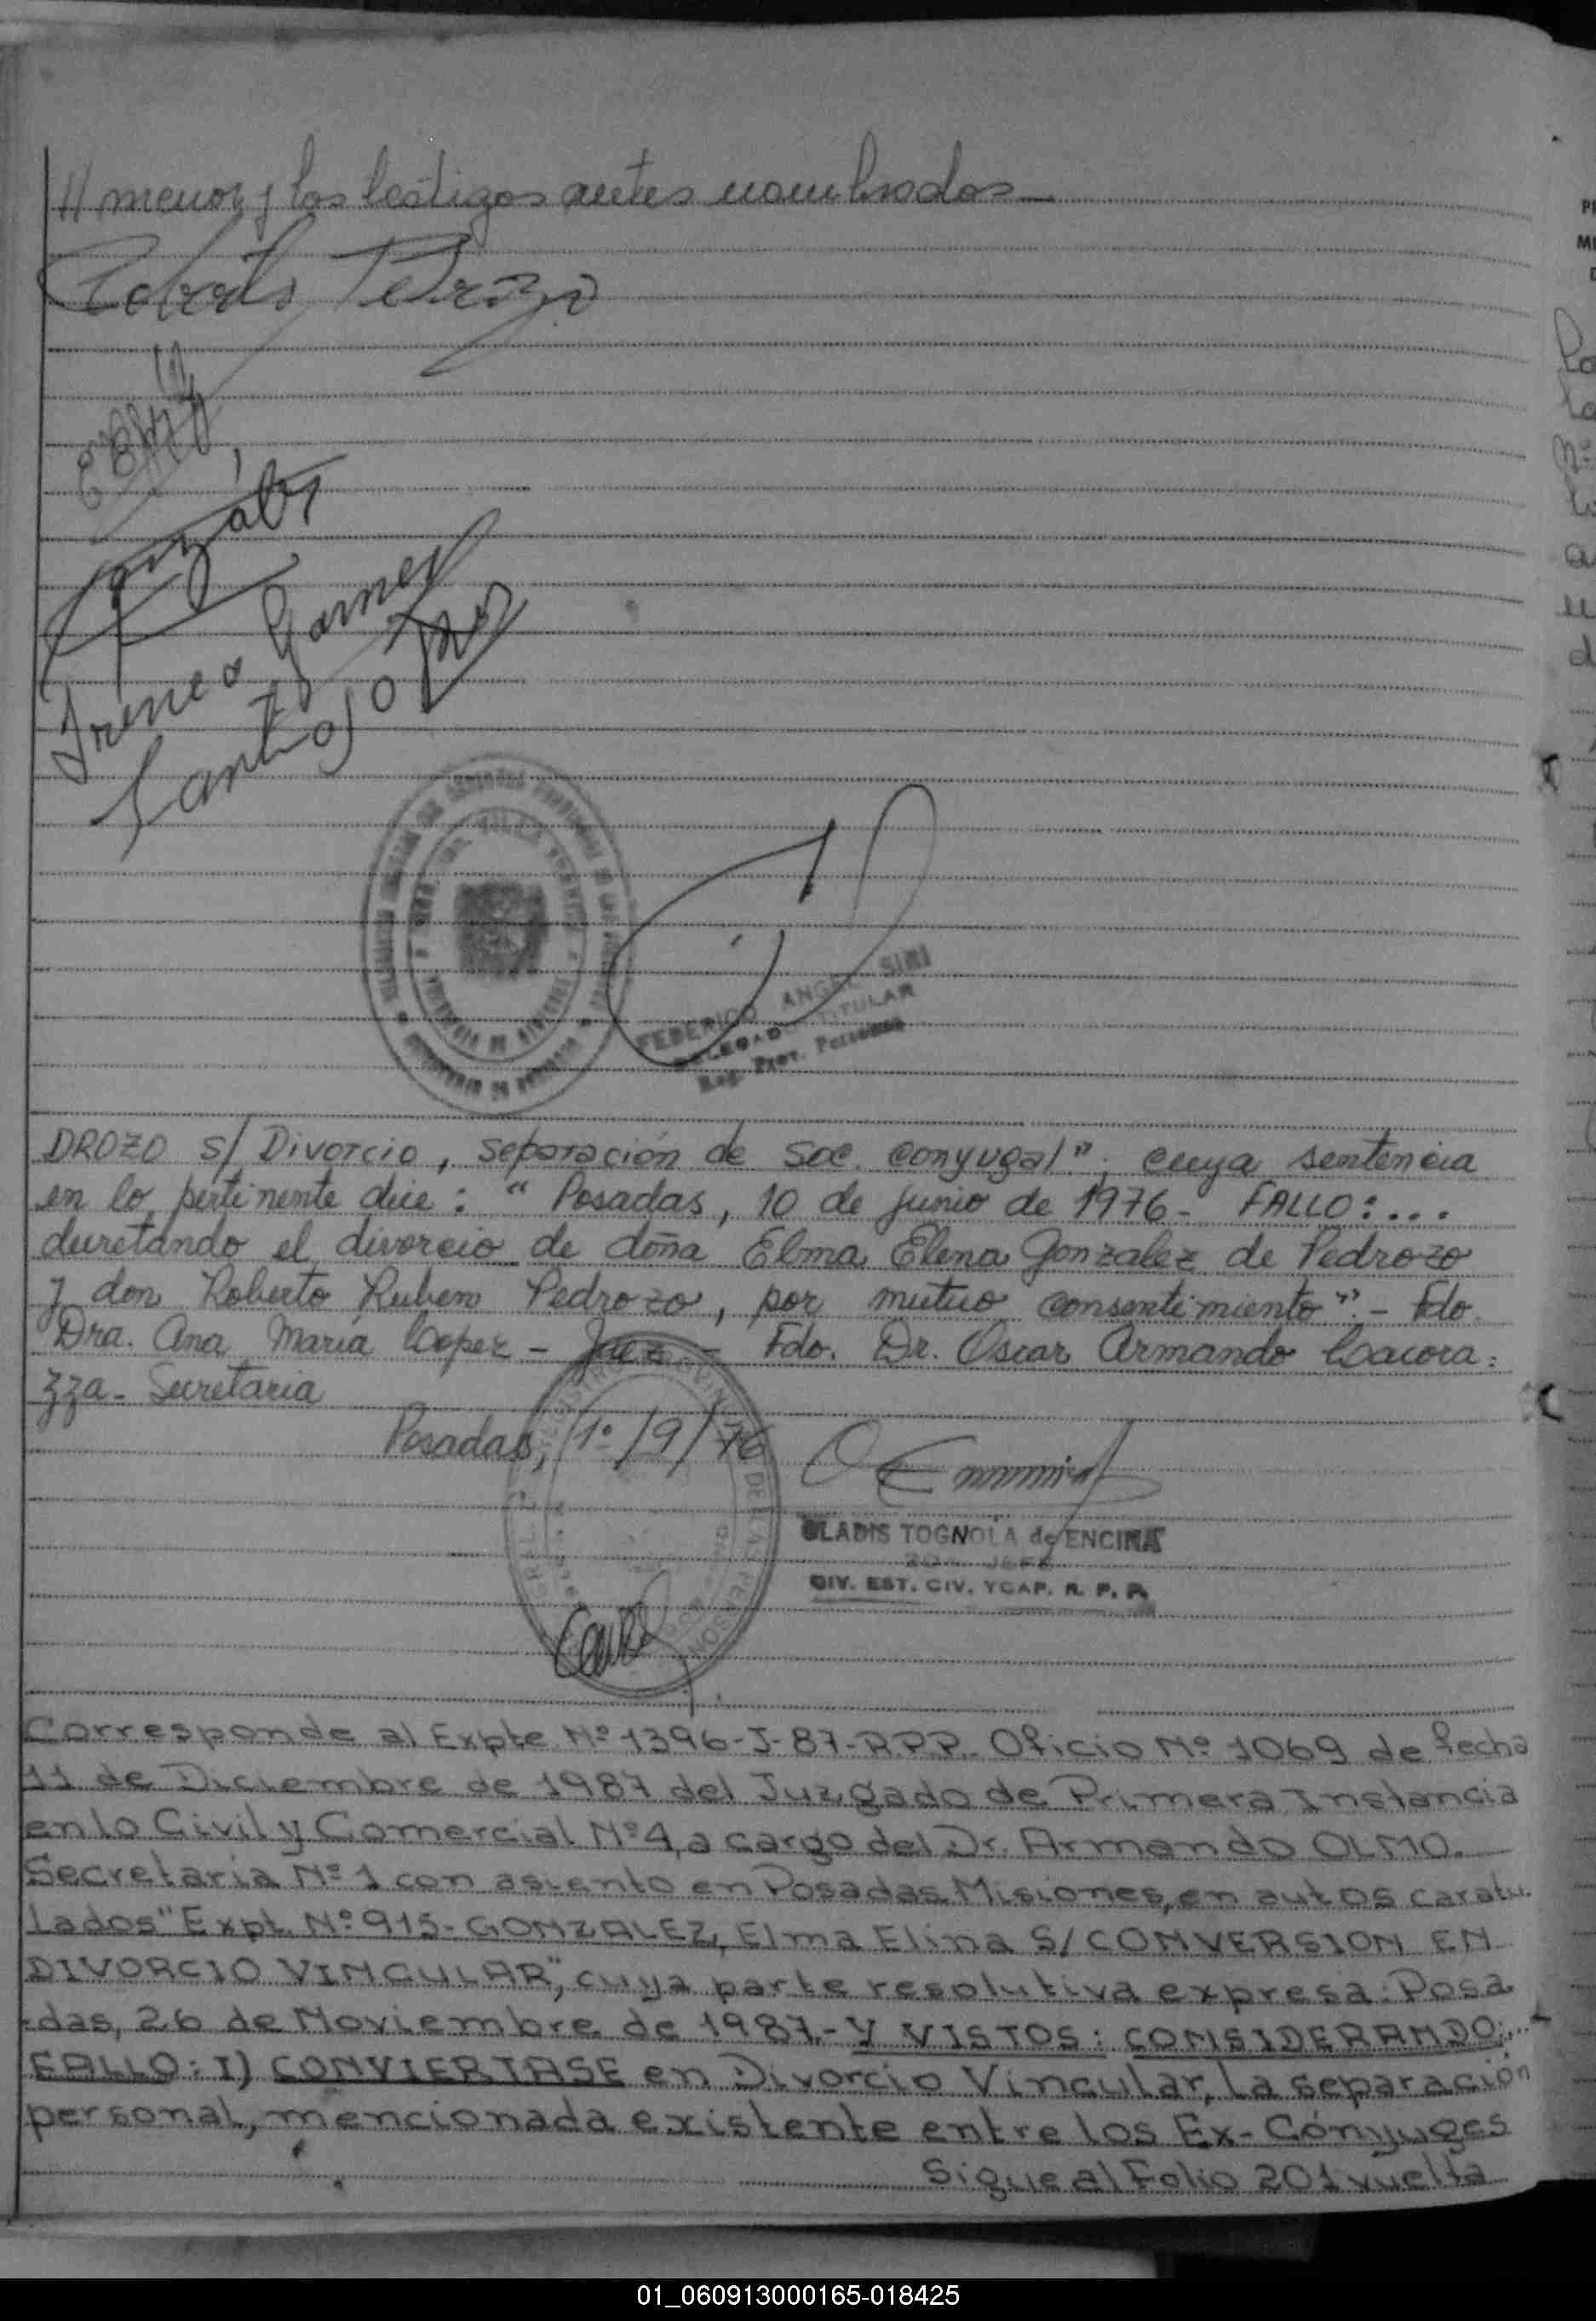 // menor, y los testigos antes nombrados_
Roberto Pedrozo
González
Ireneo Gamez
Santiago
FEDERICO ANGEL SIRI
DELEGADO TITULAR
Reg. Prov. Personas
DROZO s/ Divorcio, separación de soc. conyugal"; cuya sentencia
en lo pertinente dice: "Posadas, 10 de junio de 1976- FALLO:...
decretando el divorcio de doña Elma Elena Gonzalez de Pedrozo
y don Roberto Ruben Pedrozo, por mutuo consentimiento".- Fdo.
Dra. Ana María Lopez - Juez - Fdo. Dr. Oscar Armando
zza- Secretaria
Posadas, 1º/9/76
GLADIS TOGNOLA de ENCINA
JEFE
DIV. EST. CIV. Y CAP. R. P. P.
Corresponde al Expte Nº 1396-J-87-R.P.P. Oficio Nº 1069 de fecha
11 de Diciembre de 1987 del Juzgado de Primera Instancia
en lo Civil y Comercial Nº 4, a cargo del Dr. Armando OLMO.
Secretaria Nº 1 con asiento en Posadas Misiones, en autos caratu-
lados "Expt. Nº 915- GONZALEZ, Elma Elina S/ CONVERSION EN
DIVORCIO VINCULAR", cuya parte resolutiva expresa: Posa
-das, 26 de Noviembre de 1987.- Y VISTOS: CONSIDERANDO:...-
FALLO: I) CONVIERTASE en Divorcio Vincular, la separación
personal, mencionada existente entre los Ex-Cónyuges
Sigue al Folio 201 vuelta
01_060913000165-018425